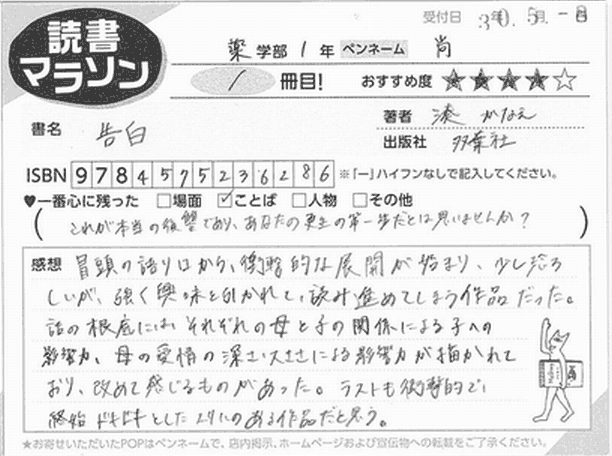 読書マラソン
受付日 30.5月.-8日
薬学部 1年 ペンネーム 尚
1冊目! おすすめ度 ★★★★☆
書名 告白
著者 湊 かなえ
出版社 双葉社
ISBN 9784575236286 ※「-」ハイフンなしで記入してください。
♥一番心に残った □場面 ☑ことば □人物 □その他
(これが本当の復讐であり、あなたの更生の第一歩だとは思いませんか?)
感想 冒頭の語り口から、衝撃的な展開が始まり、少し恐ろ
しいが、強く興味を引かれて、読み進めてしまう作品だった。
話の根底には、それぞれの母と子の関係による子への
影響力、母の愛情の深さ、大きさによる影響力が描かれて
おり、改めて感じるものがあった。ラストも衝撃的で、
終始ドキドキとしたスリルのある作品だと思う。
★お寄せいただいたPOPはペンネームで、店内掲示、ホームページおよび宣伝物への転載をご了承ください。